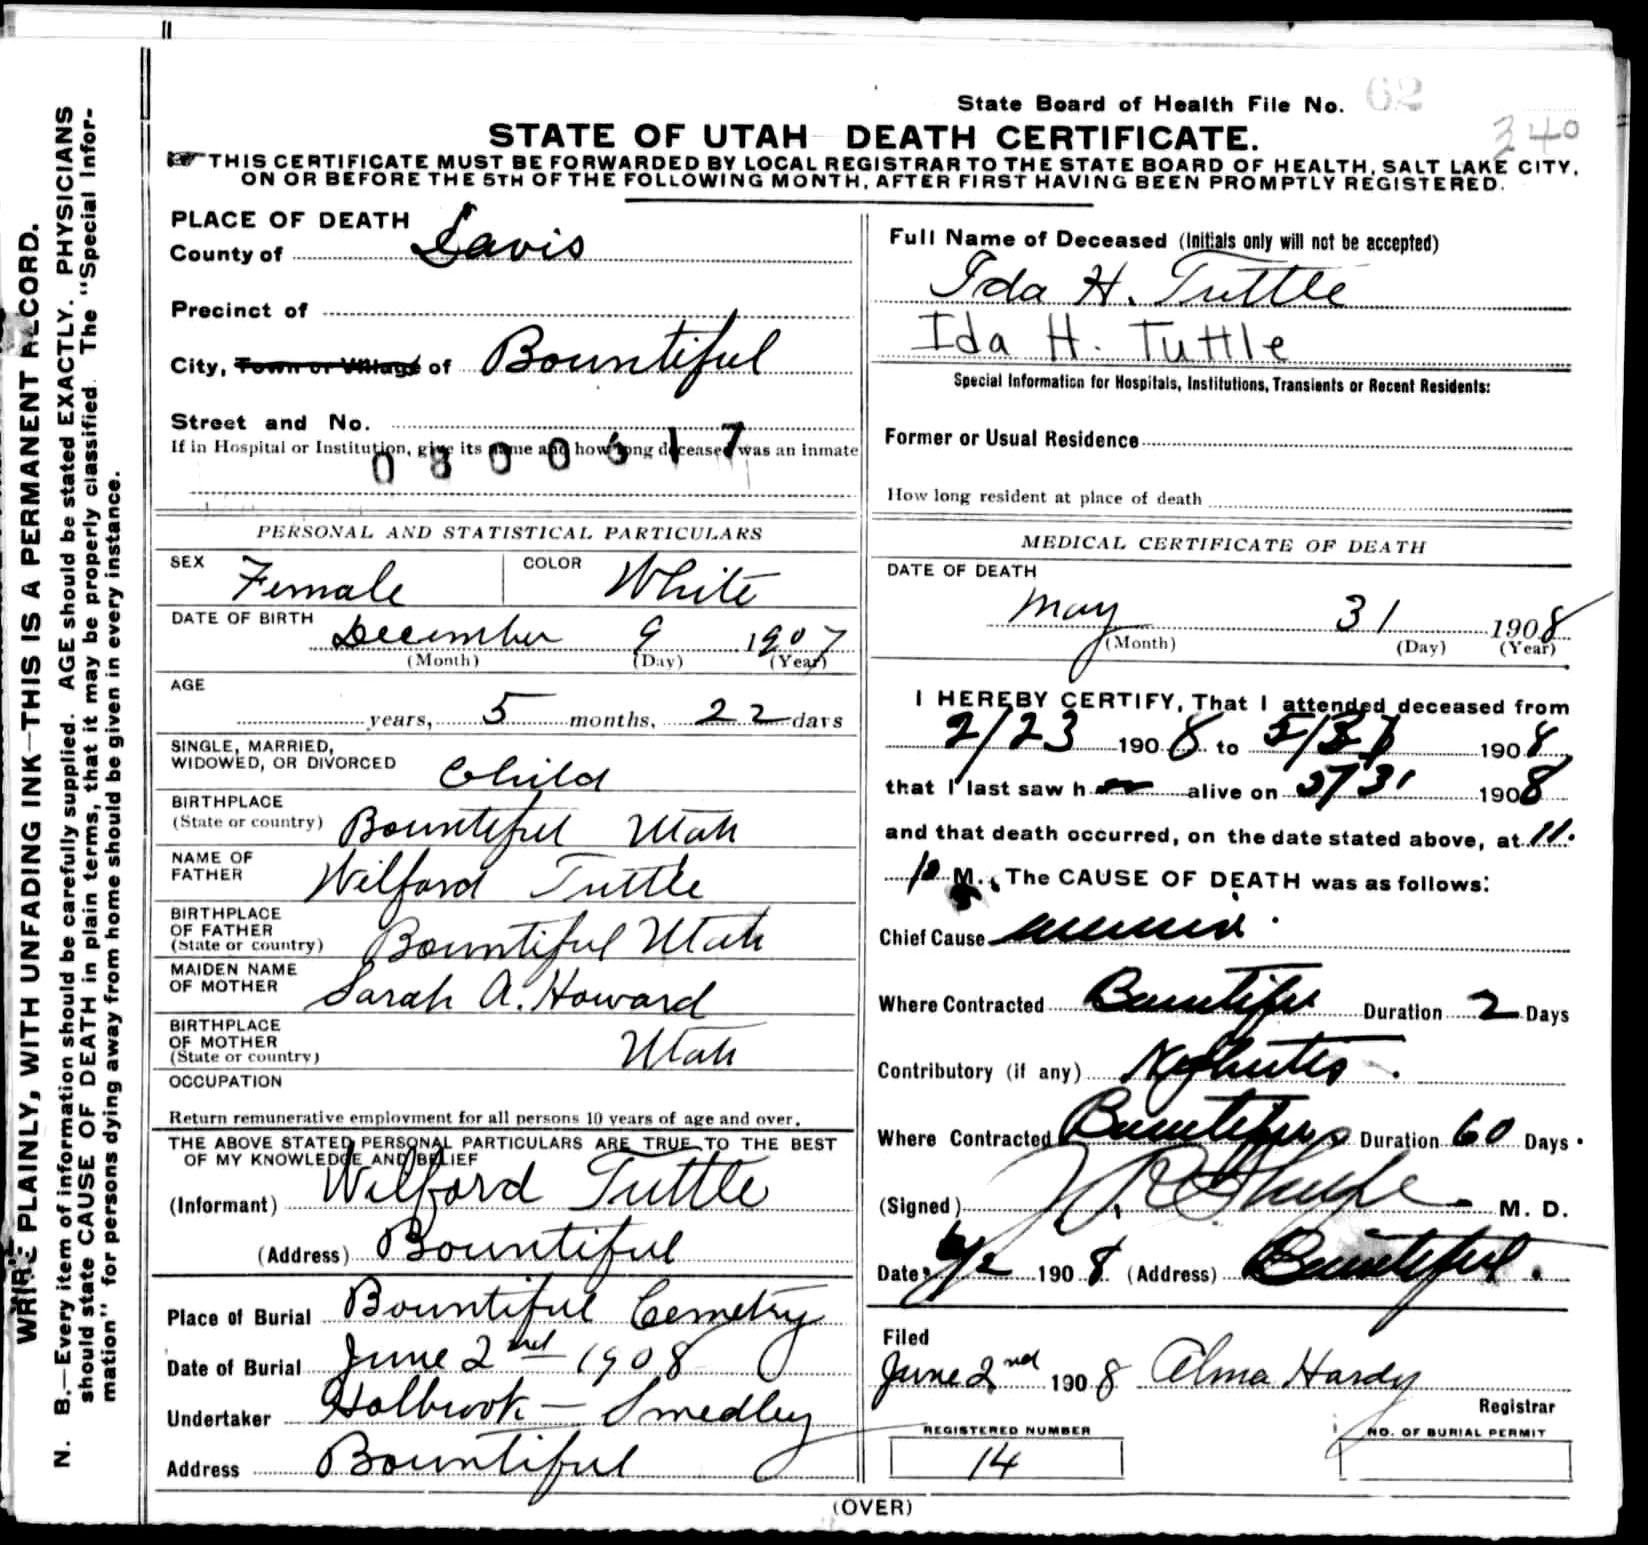 State Board of Health File No. 62
340
STATE OF UTAH DEATH CERTIFICATE.
THIS CERTIFICATE MUST BE FORWARDED BY LOCAL REGISTRAR TO THE STATE BOARD OF HEALTH, SALT LAKE CITY,
ON OR BEFORE THE 5TH OF THE FOLLOWING MONTH, AFTER FIRST HAVING BEEN PROMPTLY REGISTERED.
WRITE PLAINLY, WITH UNFADING INK—THIS IS A PERMANENT RECORD.
N. B.—Every item of information should be carefully supplied. AGE should be stated EXACTLY. PHYSICIANS
should state CAUSE OF DEATH in plain terms, that it may be properly classified. The "Special Infor-
mation" for persons dying away from home should be given in every instance.
PLACE OF DEATH
County of Davis
Precinct of
City, Town or Village of Bountiful
Street and No.
If in Hospital or Institution, give its name and how long deceased was an inmate
0800617
PERSONAL AND STATISTICAL PARTICULARS
SEX Female COLOR White
DATE OF BIRTH December 9 1907
(Month) (Day) (Year)
AGE
years, 5 months, 22 days
SINGLE, MARRIED,
WIDOWED, OR DIVORCED Child
BIRTHPLACE
(State or country) Bountiful Utah
NAME OF
FATHER Wilford Tuttle
BIRTHPLACE
OF FATHER
(State or country) Bountiful Utah
MAIDEN NAME
OF MOTHER Sarah A. Howard
BIRTHPLACE
OF MOTHER
(State or country) Utah
OCCUPATION
Return remunerative employment for all persons 10 years of age and over.
THE ABOVE STATED PERSONAL PARTICULARS ARE TRUE TO THE BEST
OF MY KNOWLEDGE AND BELIEF
(Informant) Wilford Tuttle
(Address) Bountiful
Place of Burial Bountiful Cemetry
Date of Burial June 2nd 1908
Undertaker Holbrook - Smedley
Address Bountiful
Full Name of Deceased (Initials only will not be accepted)
Ida H. Tuttle
Ida H. Tuttle
Special Information for Hospitals, Institutions, Transients or Recent Residents:
Former or Usual Residence
How long resident at place of death
MEDICAL CERTIFICATE OF DEATH
DATE OF DEATH
May 31 1908
(Month) (Day) (Year)
I HEREBY CERTIFY, That I attended deceased from
2/23 1908 to 5/31 1908
that I last saw h alive on 5/31 1908
and that death occurred, on the date stated above, at 11.
M. The CAUSE OF DEATH was as follows:
Chief Cause
Where Contracted Bountiful Duration 2 Days
Contributory (if any) Nephritis
Where Contracted Bountiful Duration 60 Days.
(Signed) M. D.
Date 6/2 1908 (Address) Bountiful.
Filed
June 2nd 1908 Alma Hardy
Registrar
REGISTERED NUMBER
14
NO. OF BURIAL PERMIT
(OVER)